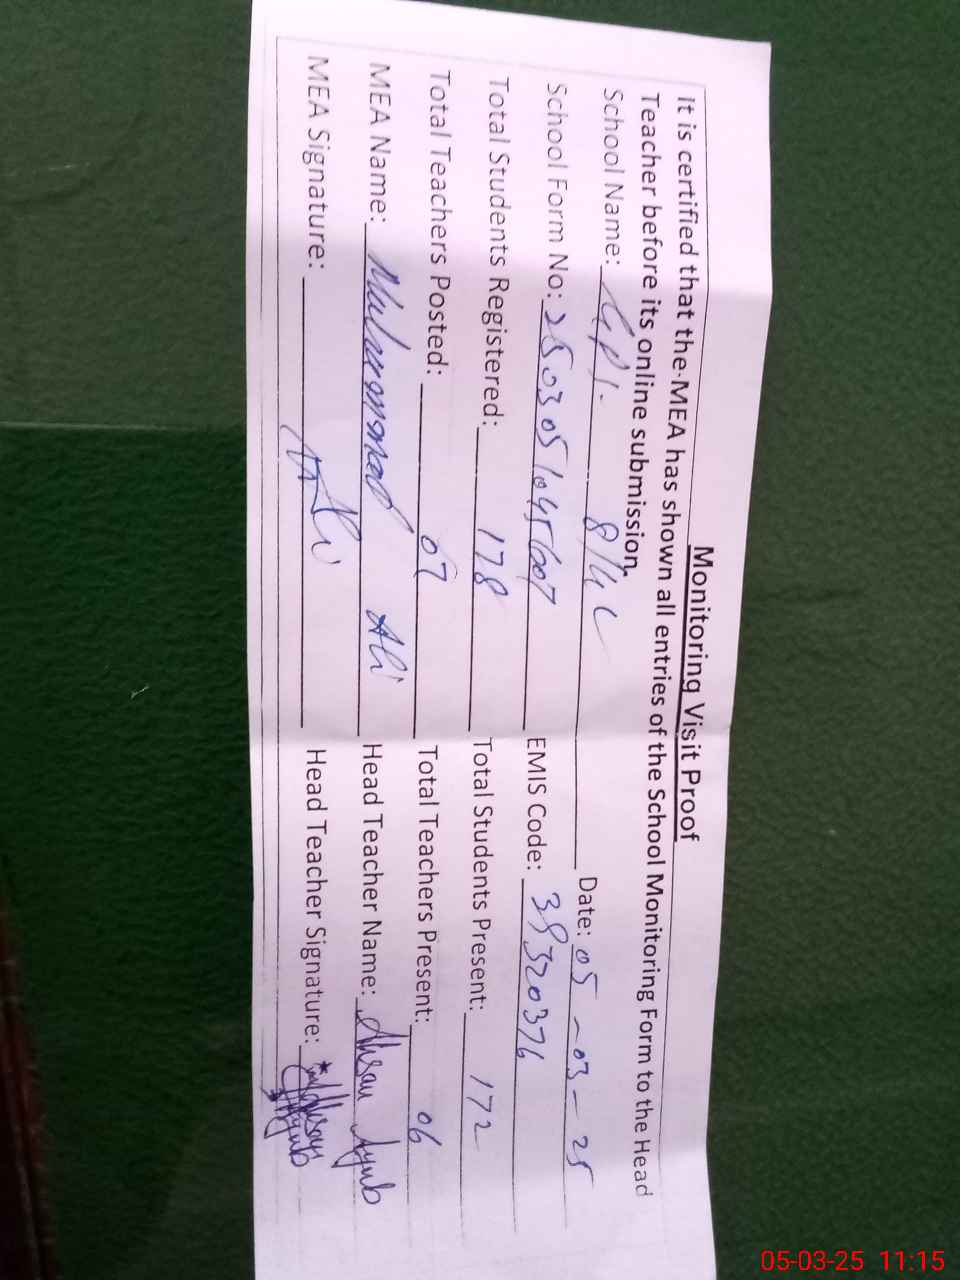 Monitoring Visit Proof
It is certified that the MEA has shown all entries of the School Monitoring Form to the Head
Teacher before its online submission.
School Name: GPS. 8/4L Date: 05-03-25
School Form No: EMIS Code: 39320376
Total Students Registered: 178 Total Students Present: 172
Total Teachers Posted: 07 Total Teachers Present: 06
MEA Name: Muhammad Ali Head Teacher Name: Ahsan Ayub
MEA Signature: Ali Head Teacher Signature: Ahsan Ayub
05-03-25 11:15